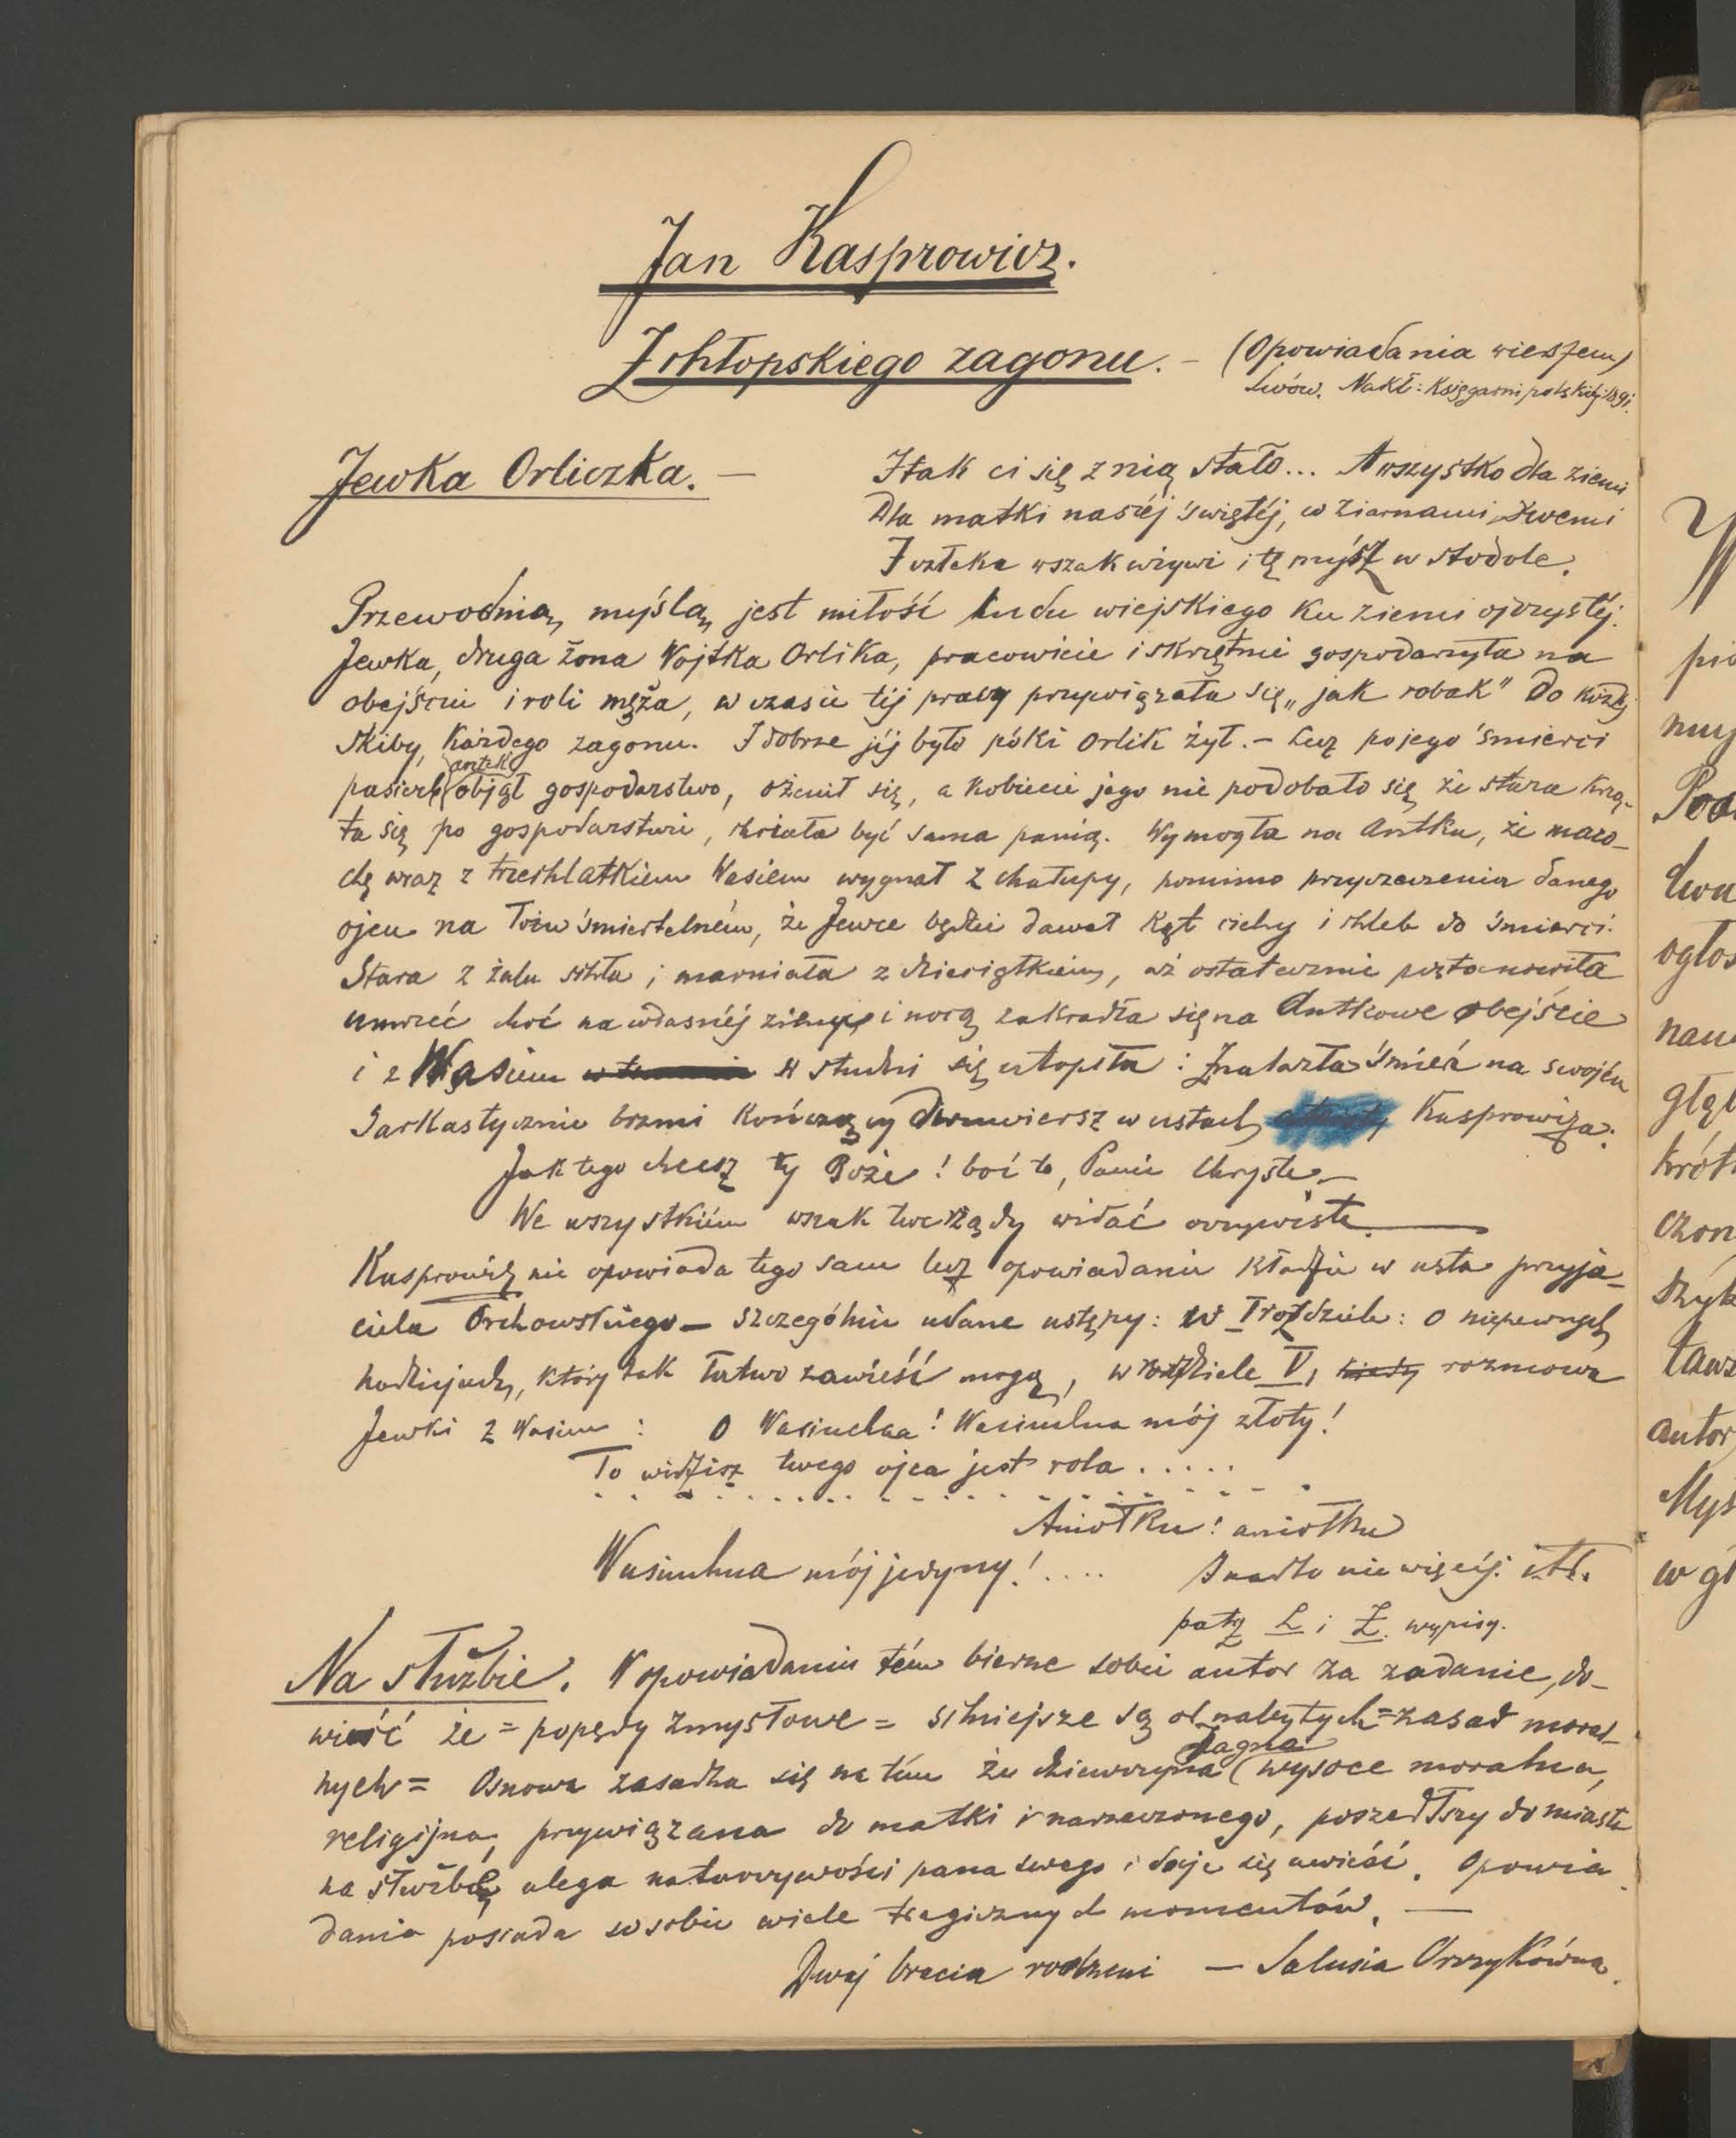 Jan Kasprowicz.
Z chłopskiego zagonu. – (Opowiadania wierszem)
Lwów. Nakł: Księgarni polskiéj 1891.
Jewka Orliczka. –
I tak ci się z nią stało... A wszystko dla ziemi
Dla matki naszéj świętéj, co ziarnami swemi
I człeka wszak wiywi i tę mysz w stodole.
Przewodnią myślą jest miłość ludu wiejskiego ku ziemi ojczystéj.
Jewka, druga żona Wojtka Orlika, pracowicie i skrzętnie gospodarzyła na
obejściu i roli męża, w czasie téj pracy przywiązała się „jak robak" do każdéj
skiby, każdego zagonu. I dobrze jéj było póki Orlik żył. – Lecz po jego śmierci
pasierb (Antek) objął gospodarstwo, ożenił się, a kobiecie jego nie podobało się że stara krzą-
ta się po gospodarstwie, chciała być sama panią. Wymogła na Antku, że maco-
chę wraz z trzechlatkiem Wasiem wygnał z chałupy, pomimo przyrzeczenia danego
ojcu na łożu śmiertelném, że Jewce będzie dawał kąt cichy i chleb do śmierci.
Stara z żalu schła i marniała z dzieciątkiem, aż ostatecznie postanowiła
umrzéć choć na własnéj ziemi i nocą zakradła się na Antkowe obejście
i z Wasiem w studni się utopiła: Znalazła śmierć na swojém
Sarkastycznie brzmi kończący dwuwiersz w ustach Kasprowicza:
Jak tego chcesz ty Boże! boć to, Panie Chryste –
We wszystkiém wszak twe rządy widać oczywiste.
Kasprowicz nie opowiada tego sam lecz opowiadanie kładzie w usta przyja-
ciela Orchowskiego – szczególnie udane ustępy: w I rozdziele: o niepewnych
kodicjach, któréj tak łatwo zawieść mogą, w rozdziele V, kiedy rozmowa
Jewki z Wasiem: O Wasiuchna! Wasiuchna mój złoty!
To widzisz twego ojca jest rola .....
. . . . . . . . . . . . . . . . . . . .
Aniołku! aniołku
Wasiuchna mój jedyny! .... Snadło nie więcéj. itd.
patrz L i Ł. wypisy.
Na służbie. W opowiadaniu tém bierze sobie autor za zadanie, do-
wieść że = popędy zmysłowe = silniejsze są od nabytych = zasad moral-
nych = Osnowa zasadza się na tém że dziewczyna (Jagna) wysoce moralna,
religijna, przywiązana do matki i narzeczonego, poszedłszy do miasta
na służbę ulega natarczywości pana swego i daje się uwieść. Opowia-
danie posiada w sobie wiele tragicznych momentów. –
Dwaj bracia rodzeni – Salusia Orczykówna.